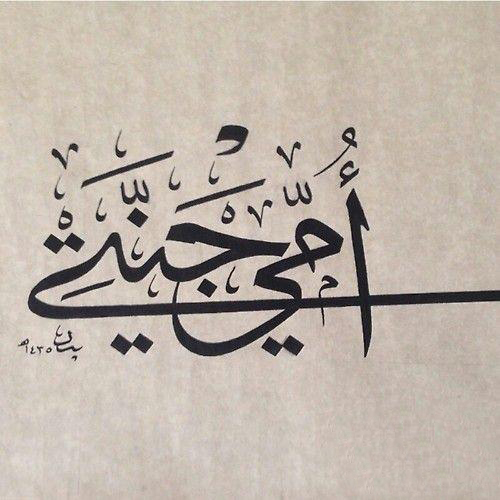 أُمّي جَنّتي
١٤٣٥هـ